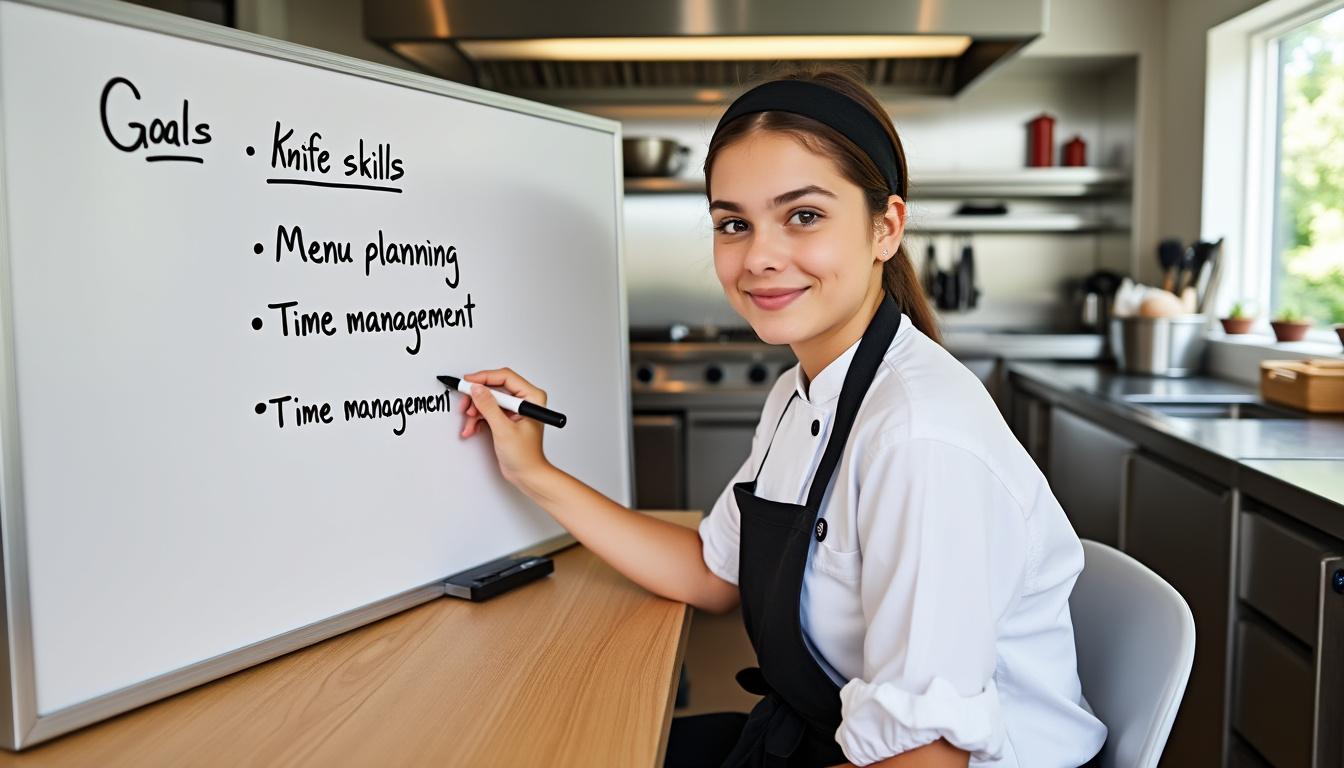 Goals
• Knife skills
• Menu planning
• Time management
• Time management